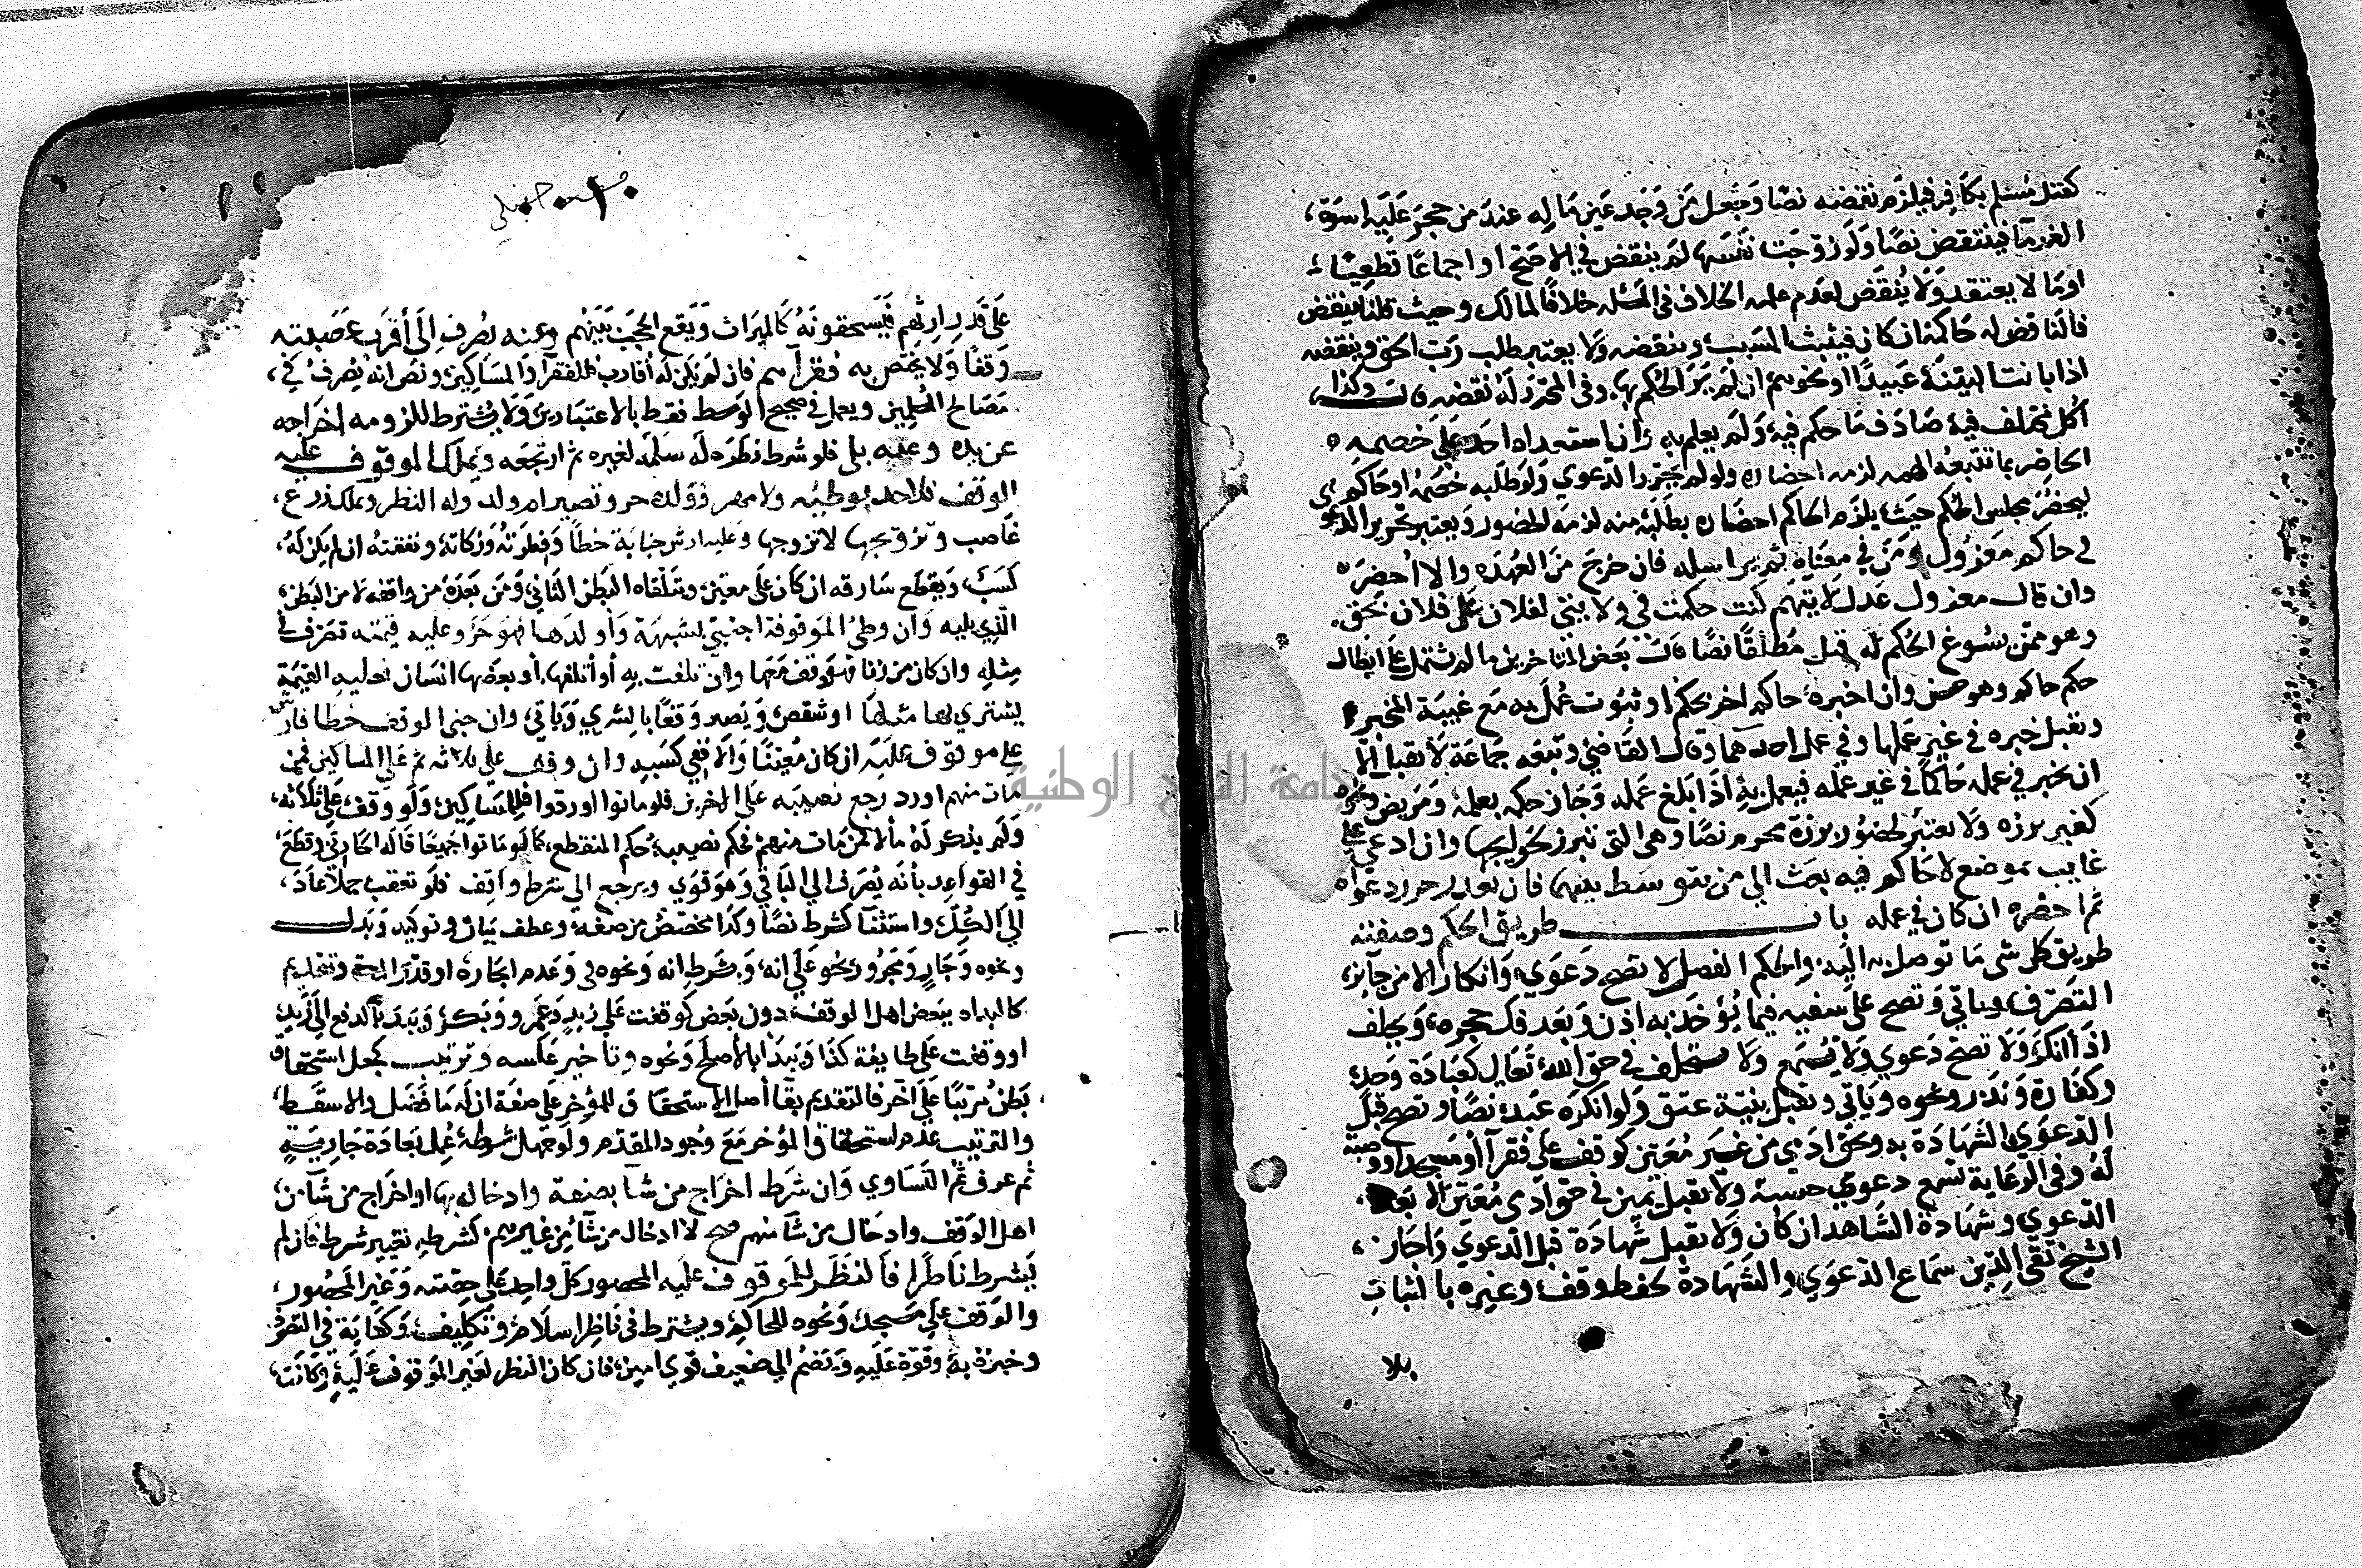 كقتل مسلم بكافر فيلزم نقضه نصا وجعل من وجد عين ماله عند من حجر عليه اسوة
الغرما فينتقض نصا ولو زوجت نفسها لم ينقض في الاصح او اجماعا قطعيا
او ما لا يعتقد ولا ينقض لعدم علمه الخلاف في المسله خلافا لمالك وحيث قلنا ينقض
فالناقض له حاكمه ان كان فيثبت السبب وينقضه ولا يعتبر طلب رب الحق وينقضه
اذا بانت البينة عبيدا او نحوهم ان لم ير الحكم بها وفي المحرر له نقضه قال وكذا
كل مختلف فيه صادف ما حكم فيه ولم يعلم به وان استعداه احد على خصمه
الحاضر بما تتبعه الهمه لزمه احضاره ولو لم يحرر الدعوي ولو طلبه خصمه او حاكم
ليحضر مجلس الحكم حيث يلزم الحاكم احضاره بطلبه منه لزمه الحضور ويعتبر تحرير الدعوي
في حاكم معزول ومن في معناه ثم يراسله فان خرج من العهده والا احضره
وان قال معزول عدل لا يتهم كنت حكمت في ولايتي لفلان على فلان بحق
وهو ممن يسوغ الحكم له قبل مطلقا نصا قال بعض المتاخرين ما لم يشتمل على ابطال
حكم حاكم وهو حسن وان اخبره حاكم اخر بحكم او ثبوت عمل به مع غيبة المخبر
ويقبل خبره في غير عملها وفي عمل احدهما وقال القاضي وتبعه جماعة لا يقبل الا
ان يخبر في عمله حاكما في غير عمله فيعمل به اذا بلغ عمله وجاز حكمه بعلمه ومريض وغيره
كغير برزه ولا يعتبر لحضور برزة محرم نصا وهي التي تبرز لحوايجها وان ادعي على
غايب بموضع لا حاكم فيه بعث الي من يتوسط بينهما فان تعذر حرر دعواه
ثم احضره ان كان في عمله باب طريق الحكم وصفته
طريق كل شي ما توصل به اليه والحكم الفصل لا تصح دعوي وانكار الا من جايز
التصرف وياتي وتصح على سفيه فيما يؤخذ به اذن وبعد فك حجره ويحلف
اذا انكر ولا تصح دعوي ولا تسمع ولا يستحلف في حق الله تعالى كعبادة وحد
وكفارة ونذر ونحوه وياتي وتقبل بينة عتق ولو انكره عبد نصا وتصح قبل
الدعوي الشهادة به وبحق ادمي من غير معين كوقف على فقرا او مسجد او وصية
له وفي الرعاية تسمع دعوي حسبة ولا تقبل يمين في حق ادمي معين الا بعد
الدعوي وشهادة الشاهد ان كان ولا تقبل شهادة قبل الدعوي واجاز
الشيخ تقي الدين سماع الدعوي والشهادة لحفظ وقف وغيره بالثبات
بلا
على قدر ارثهم فيستحقونه كالميراث ويقع الحجب بينهم وعنه يصرف الى أقرب عصبته
وقفا ولا يختص به فقرآهم فان لم يكن له أقارب فللفقرآ والمساكين ونص انه يصرف في
مصالح المسلمين ويعمل في صحيح الوسط فقط بالاعتبارين ولا يشترط للزومه اخراجه
عن يده وعنه بلى فلو شرط نظره له سلمه لغيره ثم ارتجعه ويملك الموقوف عليه
الوقف فلا حد بوطئه ولا مهر وولده حر وتصير ام ولد وله النظر ويملك زرع
غاصب وتزويجها لا تزوجها وعليه ارش جناية خطأ وفطرته وزكاته ونفقته ان لم يكن له
كسب ويقطع سارقه ان كان على معين ويتلقاه البطن الثاني ومن بعده من واقفه لا من البطن
الذي يليه وان وطئ الموقوفة اجنبي بشبهة وأولدها فهو حر وعليه قيمته تصرف في
مثله وان كان من زنا فهو وقف معها وان تلفت به أو أتلفها أو بعضها انسان فعليه القيمة
يشتري بها مثلها او شقص ويصير وقفا بالشري وياتي وان جني الوقف خطا فارش
على موقوف عليه ان كان معينا والا ففي كسبه وان وقف على ثلاثه ثم على المساكين فمن
مات منهم او رد رجع نصيبه على الاخرين فلو ماتوا او ردوا فللمساكين ولو وقف على ثلاثه
ولم يذكر له مألا فمن مات منهم فحكم نصيبه حكم المنقطع كما لو ماتوا جميعا قاله الحارثي وقطع
في القواعد بأنه يصرف الي الباقي وهو قوي ويرجع الي شرط واقف فلو تعقب جملا عاد
الي الكل واستثنا كشرط نصا وكذا مخصص من صفة وعطف بيان وتوكيد وبدل
ونحوه وجار ومجرور نحو على انه وبشرط انه ونحوه وفي عدم ايجاره او قدر المدة وتقديم
كالبداة ببعض اهل الوقف دون بعض كوقفت على زيد وعمرو وبكر ويبدأ بالدفع الى زيد
او وقفت على طايفة كذا ويبدأ بالأصلح ونحوه وتأخير عكسه وترتيب كجعل استحقاق
بطن مرتبا على آخر فالتقديم بقا أصل الاستحقاق للمؤخر على صفة ان له ما فضل والا سقط
والترتيب عدم استحقاق المؤخر مع وجود المقدم ولو جهل شرطه عمل بعادة جارية
ثم عرف ثم التساوي وان شرط اخراج من شا بصفة وادخاله بها او اخراج من شآ من
اهل الوقف وادخال من شآ منهم صح لا ادخال من شآ من غيرهم كشرطه تغيير شرط فان لم
يشرط ناظرا فالنظر للموقوف عليه المحصور كل واحد على حصته وغير المحصور
والوقف على مسجد ونحوه للحاكم ويشترط في ناظر اسلام وتكليف وكفاية في التصرف
وخبرة به وقوة عليه ويضم الي ضعيف قوي امين فان كان النظر لغير الموقوف عليه وكانت
جامعة النجاح الوطنية